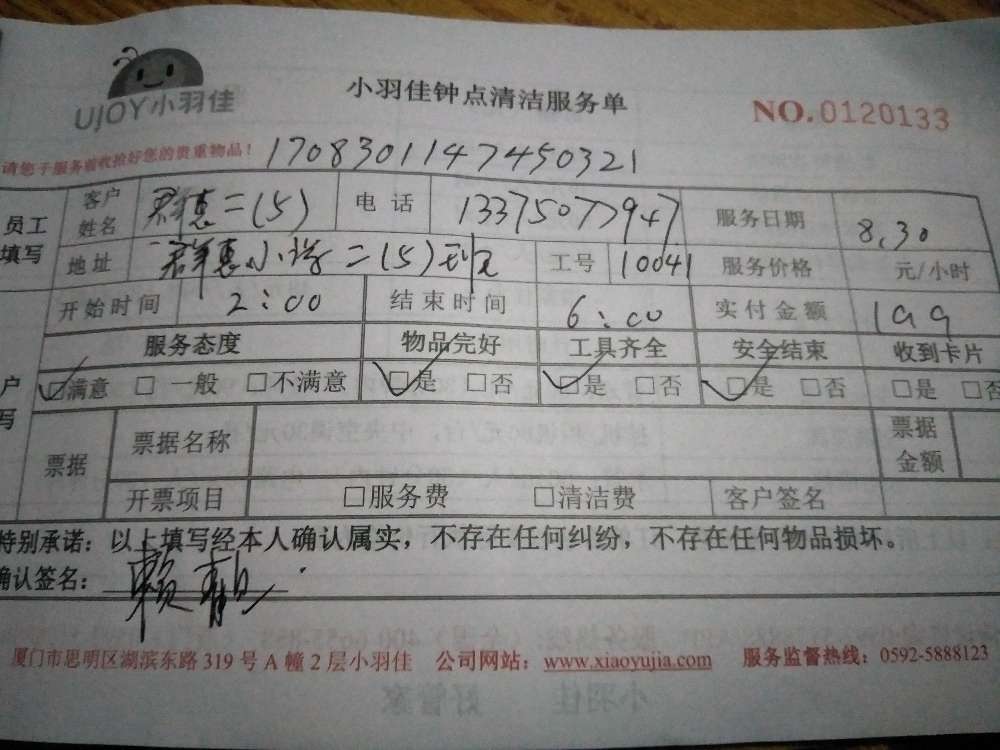 UJOY小羽佳
小羽佳钟点清洁服务单
NO.0120133
请您于服务前收拾好您的贵重物品! 1708301147450321
员工填写 客户姓名 群惠二(5) 电话 13375077947 服务日期 8.30
地址 群惠小学二(5)班 工号 10041 服务价格 元/小时
开始时间 2:00 结束时间 6:00 实付金额 199
服务态度 物品完好 工具齐全 安全结束 收到卡片
户写 ☑满意 □一般 □不满意 ☑是 □否 ☑是 □否 ☑是 □否 □是 □否
票据 票据名称 票据金额
开票项目 □服务费 □清洁费 客户签名
特别承诺：以上填写经本人确认属实，不存在任何纠纷，不存在任何物品损坏。
确认签名： 赖
厦门市思明区湖滨东路 319 号 A 幢 2 层小羽佳 公司网站：www.xiaoyujia.com 服务监督热线：0592-5888123